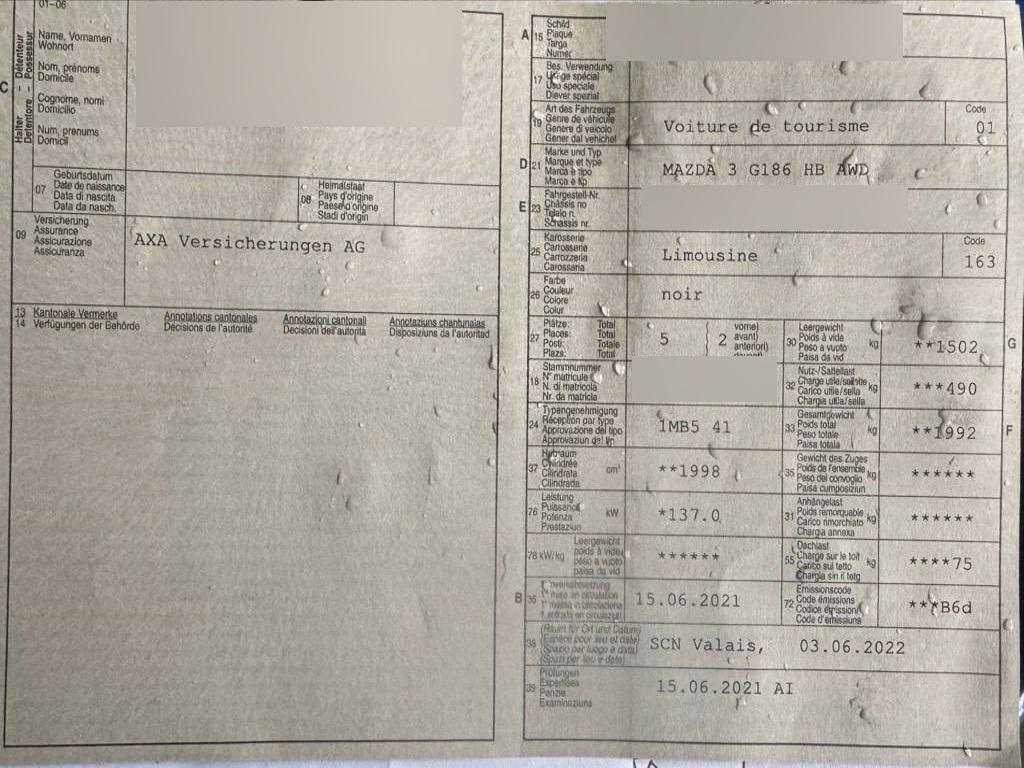 01-06
C
Halter – Détenteur
Detentore – Possessur
Name, Vornamen
Wohnort
Nom, prénoms
Domicile
Cognome, nomi
Domicilio
Num, prenums
Domicil
07
Geburtsdatum
Date de naissance
Data di nascita
Data da nasch.
08
Heimatstaat
Pays d'origine
Paese d'origine
Stadi d'origin
09
Versicherung
Assurance
Assicurazione
Assicuranza
AXA Versicherungen AG
13 Kantonale Vermerke
14 Verfügungen der Behörde
Annotations cantonales
Décisions de l'autorité
Annotazioni cantonali
Decisioni dell'autorità
Annotaziuns chantunalas
Disposiziuns da l'autoritad
A 15
Schild
Plaque
Targa
Numer
17
Bes. Verwendung
Usage spécial
Uso speciale
Diever spezial
19
Art des Fahrzeugs
Genre de véhicule
Genere di veicolo
Gener dal vehichel
Voiture de tourisme
Code
01
D 21
Marke und Typ
Marque et type
Marca e tipo
Marca e tip
MAZDA 3 G186 HB AWD
E 23
Fahrgestell-Nr.
Châssis no
Telaio n.
Schassis nr.
25
Karosserie
Carrosserie
Carrozzeria
Carossaria
Limousine
Code
163
26
Farbe
Couleur
Colore
Colur
noir
27
Plätze: Total
Places: Total
Posti: Totale
Plazs: Total
5
2
vorne)
avant)
anteriori)
30
Leergewicht
Poids à vide
Peso a vuoto
Paisa da vid
kg
**1502
G
18
Stammnummer
N° matricule
N. di matricola
Nr. da matricla
32
Nutz-/Sattellast
Charge utile/sellette
Carico utile/sella
Chargia utila/sella
kg
***490
24
Typengenehmigung
Réception par type
Approvazione del tipo
Approvaziun dal tip
1MB5 41
33
Gesamtgewicht
Poids total
Peso totale
Paisa totala
kg
**1992
F
37
Hubraum
Cylindrée
Cilindrata
Cilindrada
cm³
**1998
35
Gewicht des Zuges
Poids de l'ensemble
Peso del convoglio
Paisa cumposiziun
kg
******
76
Leistung
Puissance
Potenza
Prestaziun
kW
*137.0
31
Anhängelast
Poids remorquable
Carico rimorchiato
Chargia annexa
kg
******
78 kW/kg
Leergewicht
poids à vide
peso a vuoto
paisa da vid
******
55
Dachlast
Charge sur le toit
Carico sul tetto
Chargia sin il tetg
kg
****75
B 36
1. Inverkehrsetzung
1re mise en circulation
1a messa in circolazione
15.06.2021
72
Emissionscode
Code émissions
Codice emissioni
Code d'emissiuns
***B6d
38
(Raum für Ort und Datum)
(Espace pour lieu et date)
(Spazio per luogo e data)
(Spazi per lieu e data)
SCN Valais, 03.06.2022
39
Prüfungen
Expertises
Perizie
Examinaziuns
15.06.2021 AI